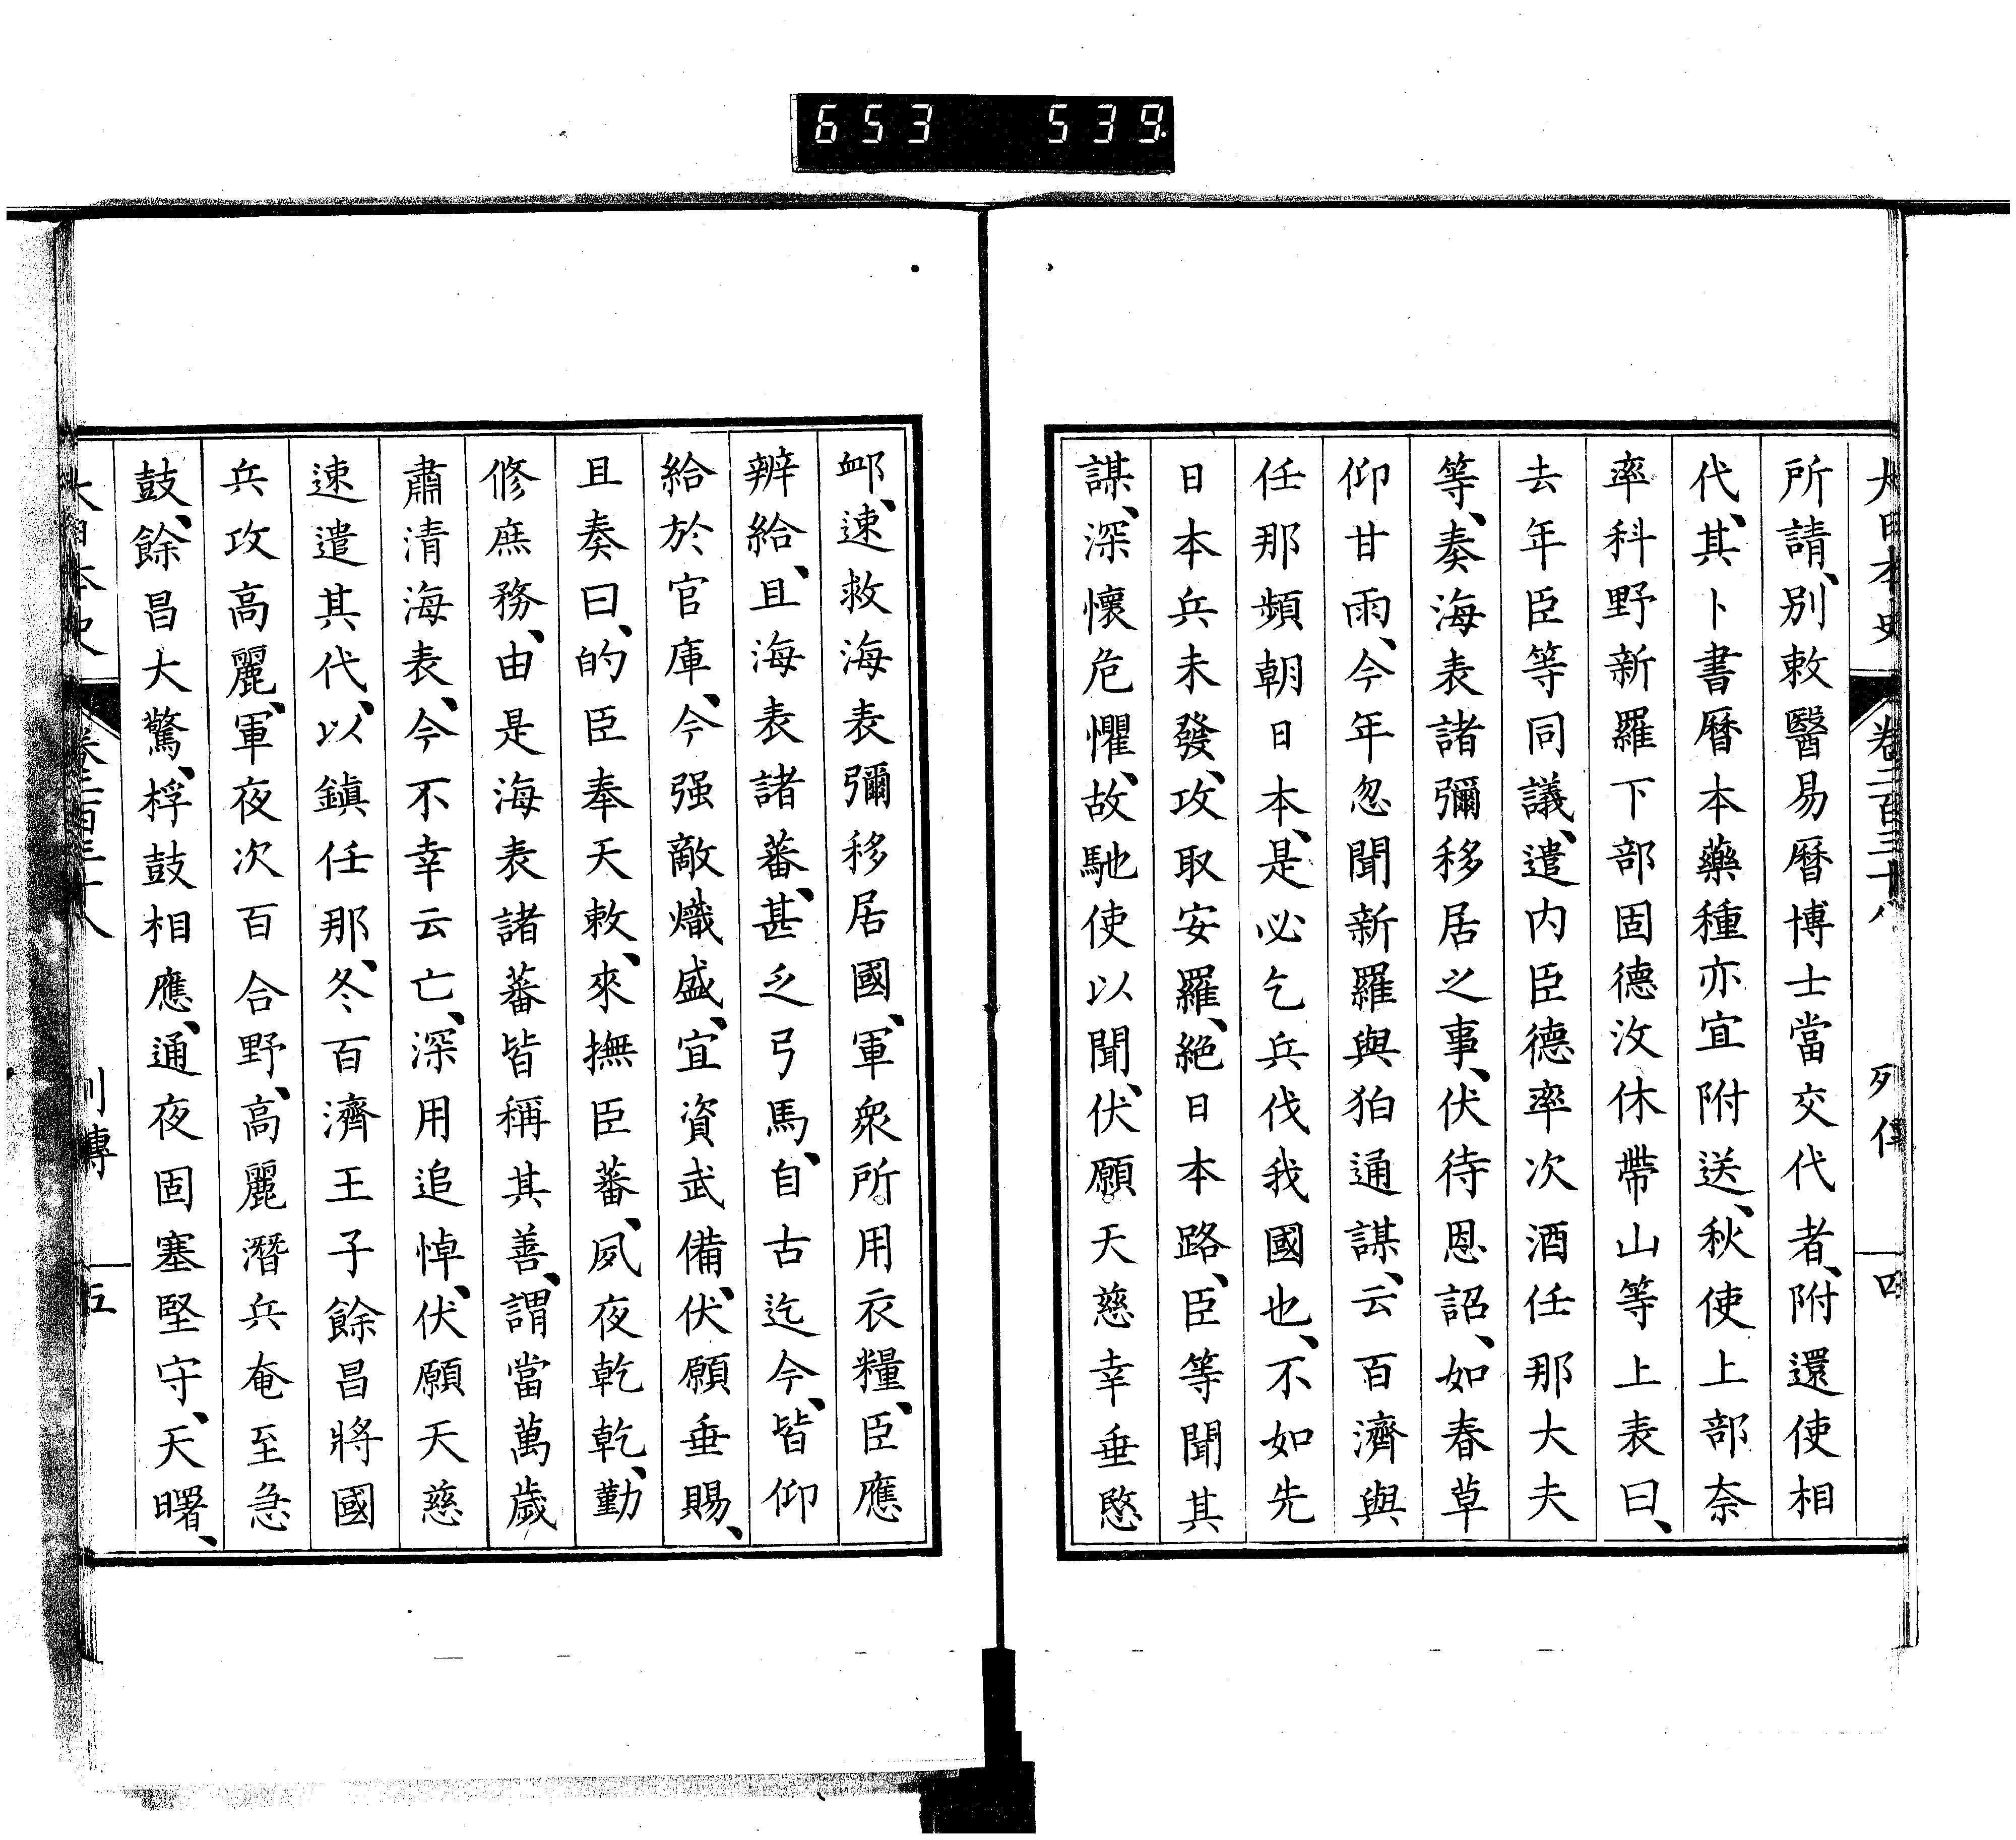 653 539.
大日本史 卷二百三十八 列傳 四
所請、別敕醫易曆博士當交代者、附還使相
代、其卜書曆本藥種亦宜附送、秋使上部奈
率科野新羅下部固德汶休帶山等上表曰、
去年臣等同議、遣内臣德率次酒任那大夫
等、奏海表諸彌移居之事、伏待恩詔、如春草
仰甘雨、今年忽聞新羅與狛通謀、云百濟與
任那頻朝日本、是必乞兵伐我國也、不如先
日本兵未發、攻取安羅、絕日本路、臣等聞其
謀、深懷危懼、故馳使以聞、伏願天慈幸垂愍
䘏、速救海表彌移居國、軍衆所用衣糧、臣應
辨給、且海表諸蕃、甚乏弓馬、自古迄今、皆仰
給於官庫、今强敵熾盛、宜資武備、伏願垂賜、
且奏曰、的臣奉天敕、來撫臣蕃、夙夜乾乾、勤
修庶務、由是海表諸蕃皆稱其善、謂當萬歲
肅清海表、今不幸云亡、深用追悼、伏願天慈
速遣其代、以鎭任那、冬百濟王子餘昌將國
兵攻高麗、軍夜次百合野、高麗潛兵奄至急
鼓、餘昌大驚、桴鼓相應、通夜固塞堅守、天曙、
大日本史 卷二百三十八 列傳 五